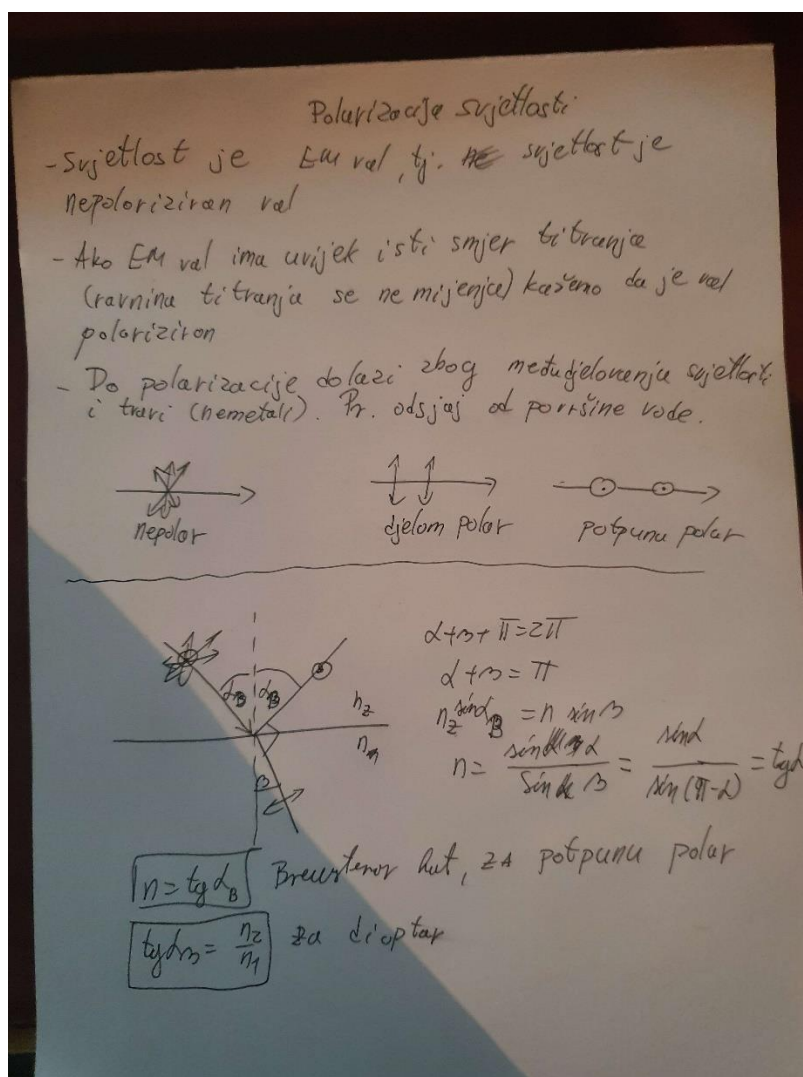 Polarizacija svjetlosti
- Svjetlost je EM val, tj. svjetlost je
nepolariziran val
- Ako EM val ima uvijek isti smjer titranja
(ravnina titranja se ne mijenja) kažemo da je val
polariziran
- Do polarizacije dolazi zbog međudjelovanja svjetlosti
i tvari (nemetali). Pr. odsjaj od površine vode.
nepolar
djelom polar
potpuna polar
α+β+π=2π
α+β=π
n_z sinα_B = n sinβ
n = sinα / sinβ = sinα / sin(π-α) = tgα
α_B α_B
n_z
β
n = tgα_B Brewsterov kut, za potpunu polar
tgα_B = n2/n1 za dioptar